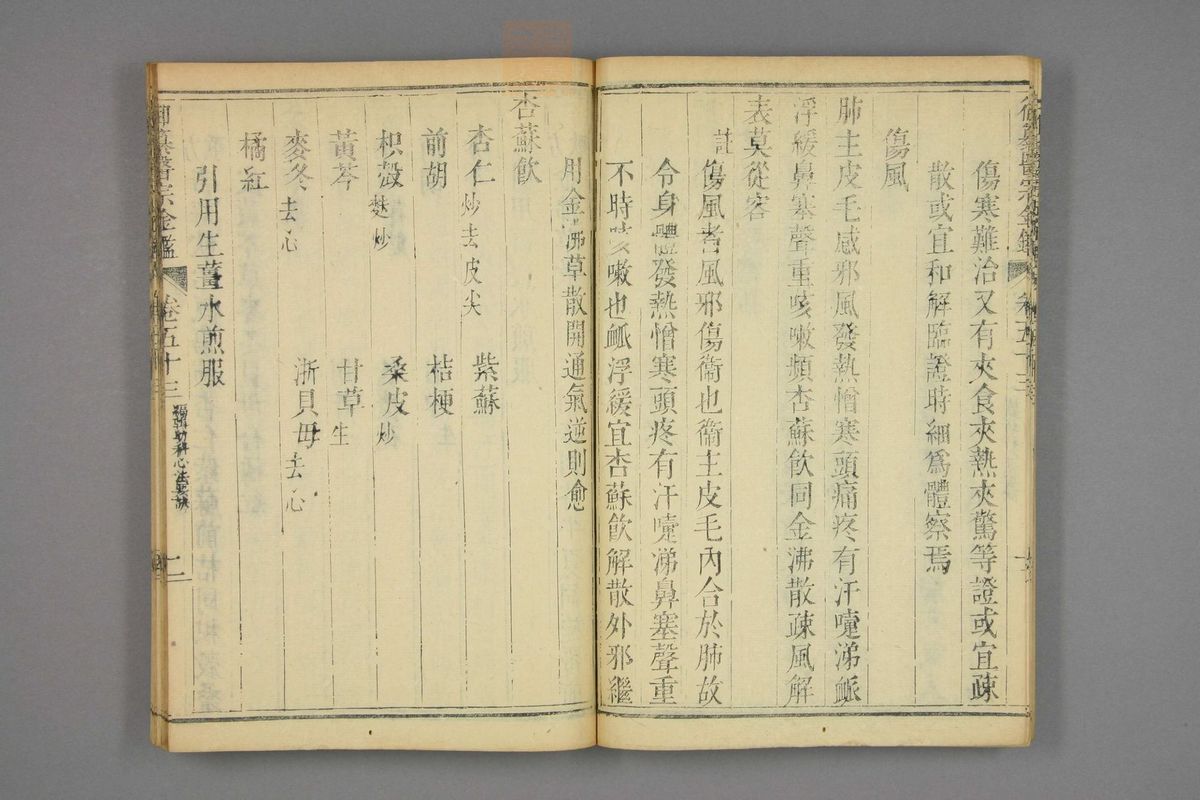 御纂醫宗金鑑 卷五十三
傷寒難治又有夾食夾熱夾驚等證或宜疎
散或宜和解臨證時細爲體察焉
傷風
肺主皮毛感邪風發熱憎寒頭痛疼有汗嚏涕脈
浮緩鼻塞聲重咳嗽頻杏蘇飮同金沸散疎風解
表莫從容
註傷風者風邪傷衞也衞主皮毛內合於肺故
令身體發熱憎寒頭疼有汗嚏涕鼻塞聲重
不時咳嗽也脈浮緩宜杏蘇飮解散外邪繼
用金沸草散開通氣逆則愈
杏蘇飮
杏仁炒去皮尖 紫蘇
前胡 桔梗
枳殼麩炒 桑皮炒
黃芩 甘草生
麥冬去心 浙貝母去心
橘紅
引用生薑水煎服
御纂醫宗金鑑 卷五十三 編輯幼科心法要訣 十二